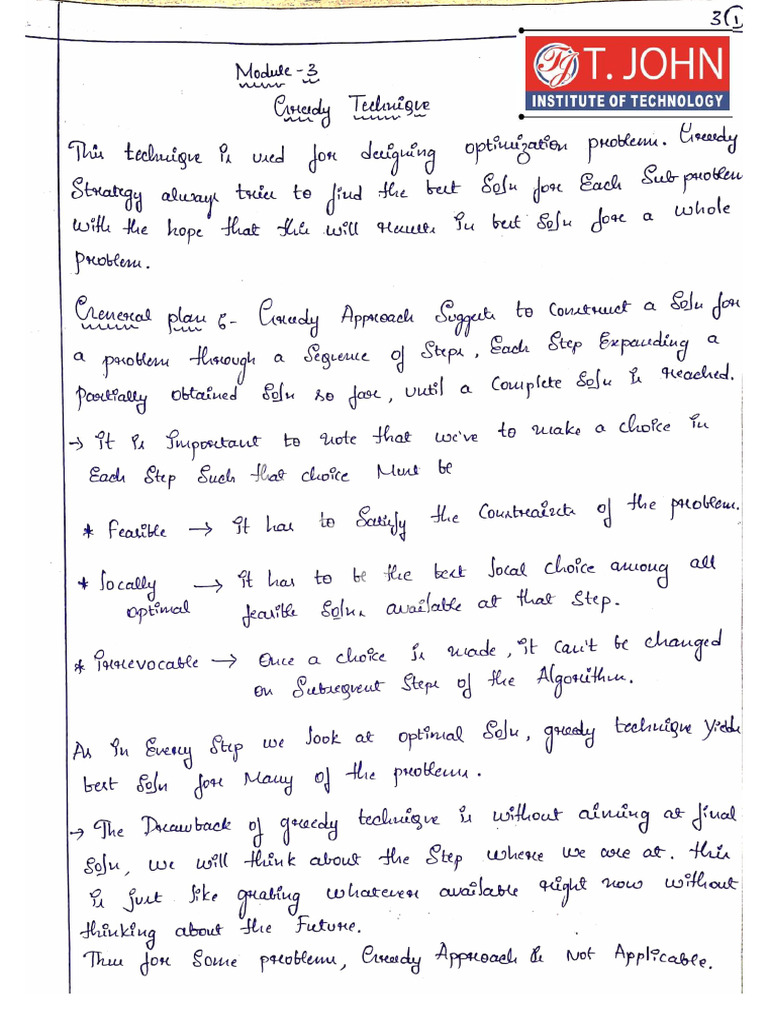 3 (1)
TJ T. JOHN
INSTITUTE OF TECHNOLOGY
Module - 3
Greedy Technique
This technique is used for designing optimization problem. Greedy
Strategy always tries to find the best Soln for Each Sub problem
with the hope that this will results in best Soln for a whole
problem.
General plan :- Greedy Approach Suggests to Construct a Soln for
a problem through a Sequence of Steps, Each Step Expanding a
partially obtained Soln so far, until a Complete Soln is reached.
→ it is important to note that we've to make a choice in
Each Step Such that choice Must be
* Feasible → it has to Satisfy the Constraints of the problem.
* locally → it has to be the best local choice among all
optimal feasible Solns available at that Step.
* irrevocable → Once a choice is made, it can't be changed
on Subsequent Steps of the Algorithm.
As in Every Step we look at optimal Soln, greedy technique Yields
best Soln for Many of the problems.
→ The Drawback of greedy technique is without aiming at final
Soln, we will think about the Step where we are at. this
is just like grabing whatever available right now without
thinking about the Future.
Thus for Some problems, Greedy Approach is Not Applicable.